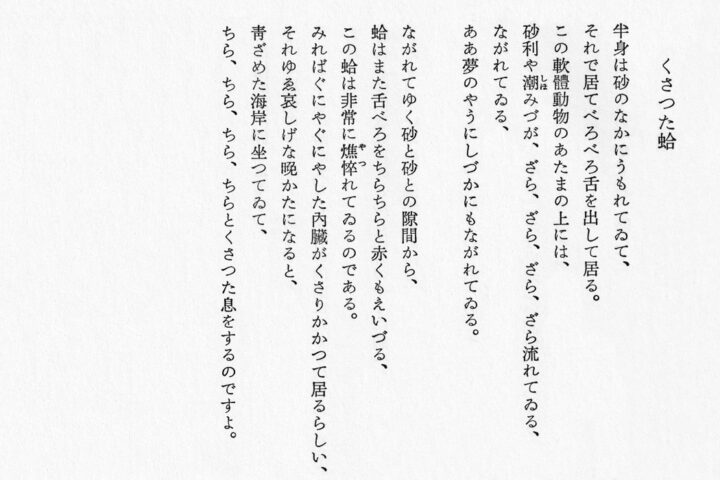 くさつた蛤
半身は砂のなかにうもれてゐて、
それで居てべろべろ舌を出して居る。
この軟體動物のあたまの上には、
砂利や潮みづが、ざら、ざら、ざら、ざら流れてゐる、
ながれてゐる、
ああ夢のやうにしづかにもながれてゐる。
ながれてゆく砂と砂との隙間から、
蛤はまた舌べろをちらちらと赤くもえいづる、
この蛤は非常に憔悴れてゐるのである。
みればぐにやぐにやした內臟がくさりかかつて居るらしい、
それゆゑ哀しげな晩かたになると、
靑ざめた海岸に坐つてゐて、
ちら、ちら、ちら、ちらとくさつた息をするのですよ。